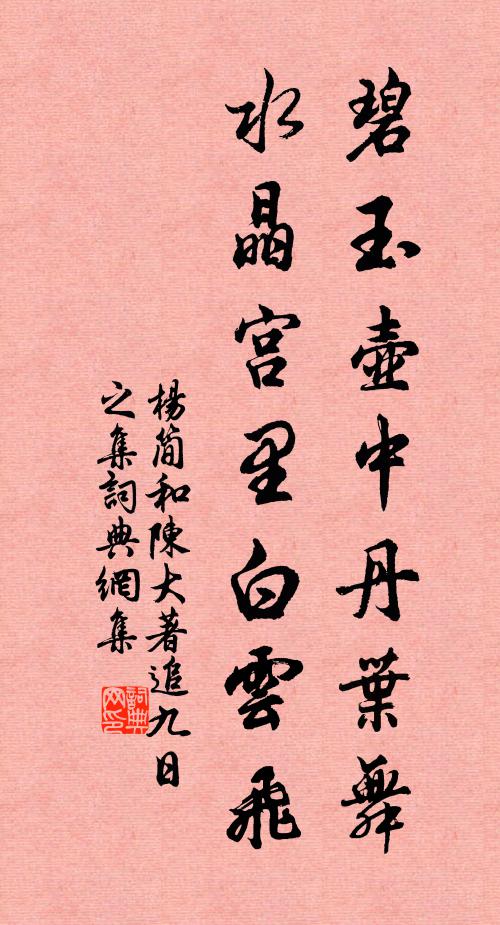 碧玉壺中丹葉舞
水晶宮里白雲飛
楊簡和陳大著追九日
之集詞典網集
詞典网印